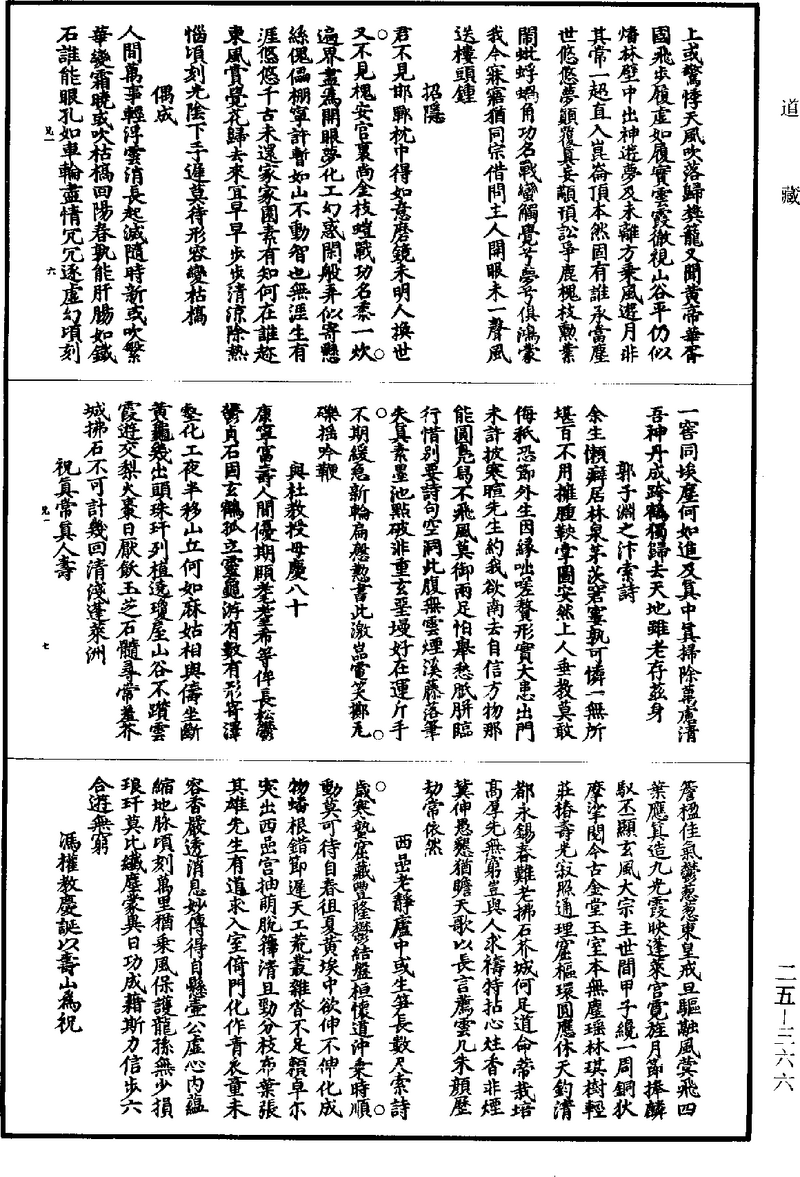 道藏
上或驚悸天風吹落歸樊籠又聞黃帝華胥
國飛步履虛如履實雲霞徹視山谷平仍似
燔林壁中出神遊夢及未離方乘風遊月非
其常一超直入崑崙頂本然固有誰承當塵
世悠悠夢顛覆真妄顢頇訟爭鹿槐枝勲業
鬧蚍蜉蝸角功名戰蠻觸覺兮夢兮俱鴻蒙
我今寐寤猶同宗借問主人開眼未一聲風
送樓頭鍾
招隱
君不見邯鄲枕中得如意磨鏡未明人換世
又不見槐安宮裏尚金枝螘戰功名黍一炊
遍界盡為開眼夢化工幻惑閑般弄似寄懸
絲傀儡棚寧許暫如山不動智也無涯生有
涯悠悠千古未還家家園素有知何在誰趂
東風賞覺花歸去來宜早早步步清涼除熱
惱頃刻光陰下手遲莫待形容變枯槁
偶成
人間萬事輕浮雲消長起滅隨時新或吹繁
華變霜曉或吹枯槁回陽春孰能肝腸如鐵
石誰能眼孔如車輪盡情冗冗逐虛幻頃刻
一窖同埃塵何如追及真中真掃除萬慮清
吾神丹成跨鶴獨歸去天地雖老存茲身
郭子淵之汴索詩
余生懶癖居林泉茅茨窘窶孰可憐一無所
堪百不用摧腰軟掌圖安然上人垂教莫敢
侮祇恐節外生因緣咄嗟贅形實大患出門
未許披寒暄先生約我欲南去自信方物那
能圓凫舄不飛風莫御兩足怕舉愁胝胼臨
行惜別要詩句空洞此腹無雲煙溪藤落筆
失真素墨池點破非重玄堊墁好在運斤手
不期緩急新輪扁慇懃書此激嵓電笑擲瓦
礫搖吟鞭
與杜教授母慶八十
康寧富壽人間優期頤耄耋希等俦長松鬱
鬱貞石固玄鶴孤立靈龜游有數有形寄澤
壑化工夜半移山丘何如麻姑相與儔坐斷
黃龜幾出頭珠玕列植遶瓊屋山谷不躓雲
霞遊交梨火棗日厭飲玉芝石髓尋常羞芥
城拂石不可計幾回清淺蓬萊洲
祝真常真人壽
簷楹佳氣鬱葱葱東皇戒旦驅融風蓂飛四
葉應真造九光霞映蓬萊宮霓旌月節捧麟
馭丕顯玄風大宗主世間甲子纔一周銅狄
摩挲閱今古金堂玉室本無塵瑶林琪樹輕
莊椿壽光寂照通理窟樞環圓應休天鈞濟
都永錫春難老拂石芥城何足道命蒂栽培
高厚先無窮豈與人求禱特拈心炷香非煙
冀伸愚懇猶瞻天歌以長言薦雲几朱顔歷
劫常依然
西嵓老靜廬中或生笋長數尺索詩
歲寒蟄密藏豐隆鬱結盤桓懷道沖乘時順
動莫可待自春徂夏黃埃中欲伸不伸化成
物蟠根錯節遲天工荒叢雜沓不足顙卓尔
突出西嵓宮抽萌脫籜清且勁分枝布葉張
其雄先生有道求入室倚門化作青衣童未
容香嚴透消息妙傳得自懸壺公虛心內蘊
縮地脉頃刻萬里猶乘風保護龍孫無少損
琅玕莫比纖塵蒙異日功成藉斯力信步六
合遊無窮
馮權教慶誕以壽山為祝
二五—三六六